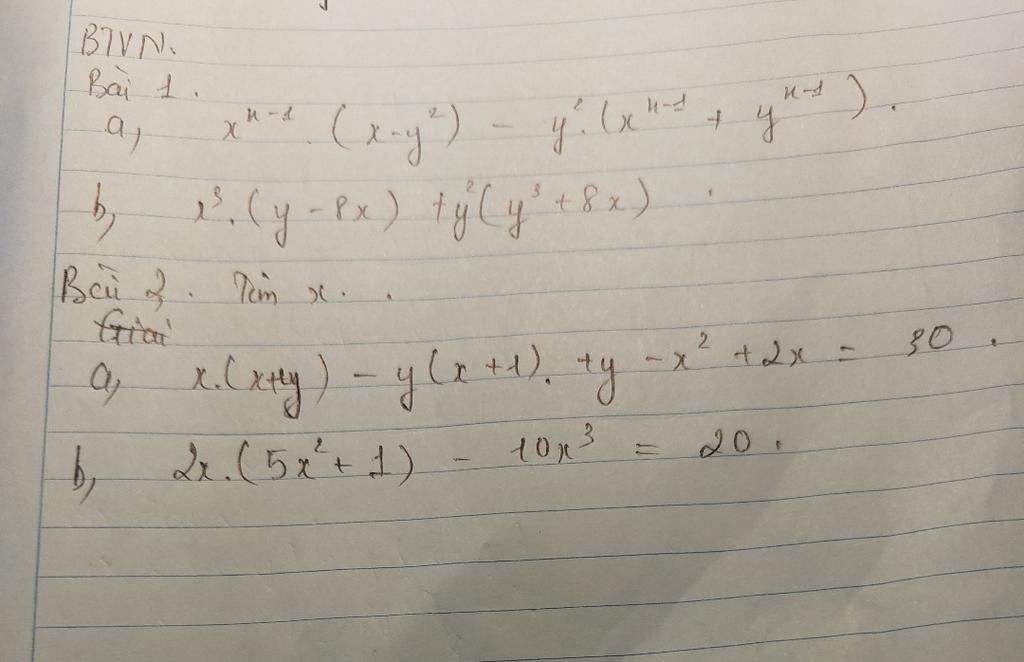 BTVN.
Bài 1.
a, xⁿ⁻¹.(x-y²) - y².(xⁿ⁻¹ + yⁿ⁻¹).
b, x³.(y - 8x) + y²(y³ + 8x).
Bài 2. Tìm x.
Giải
a, x.(x+y) - y(x+1). + y - x² + 2x = 30.
b, 2x.(5x² + 1) - 10x³ = 20.